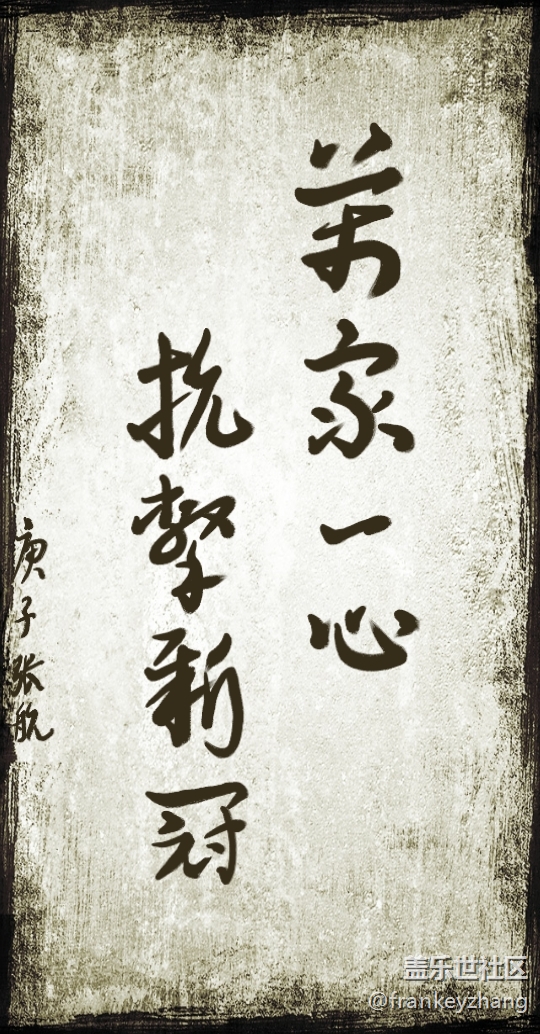 萬家一心
抗擊新冠
庚子张航
盖乐世社区
@frankeyzhang